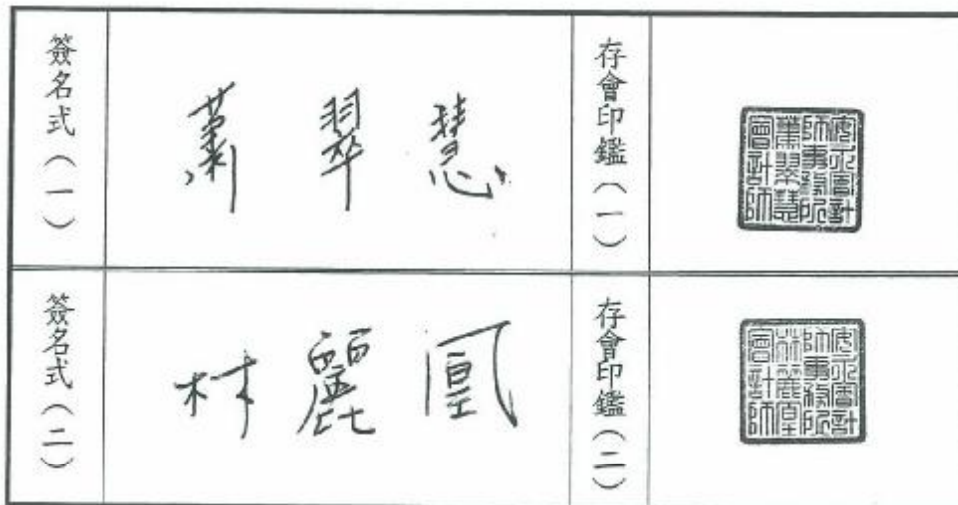 簽名式(一)
蕭翠慧
存會印鑑(一)
安永會計
師事務所
蕭翠慧
會計師
簽名式(二)
林麗凰
存會印鑑(二)
安永會計
師事務所
林麗凰
會計師